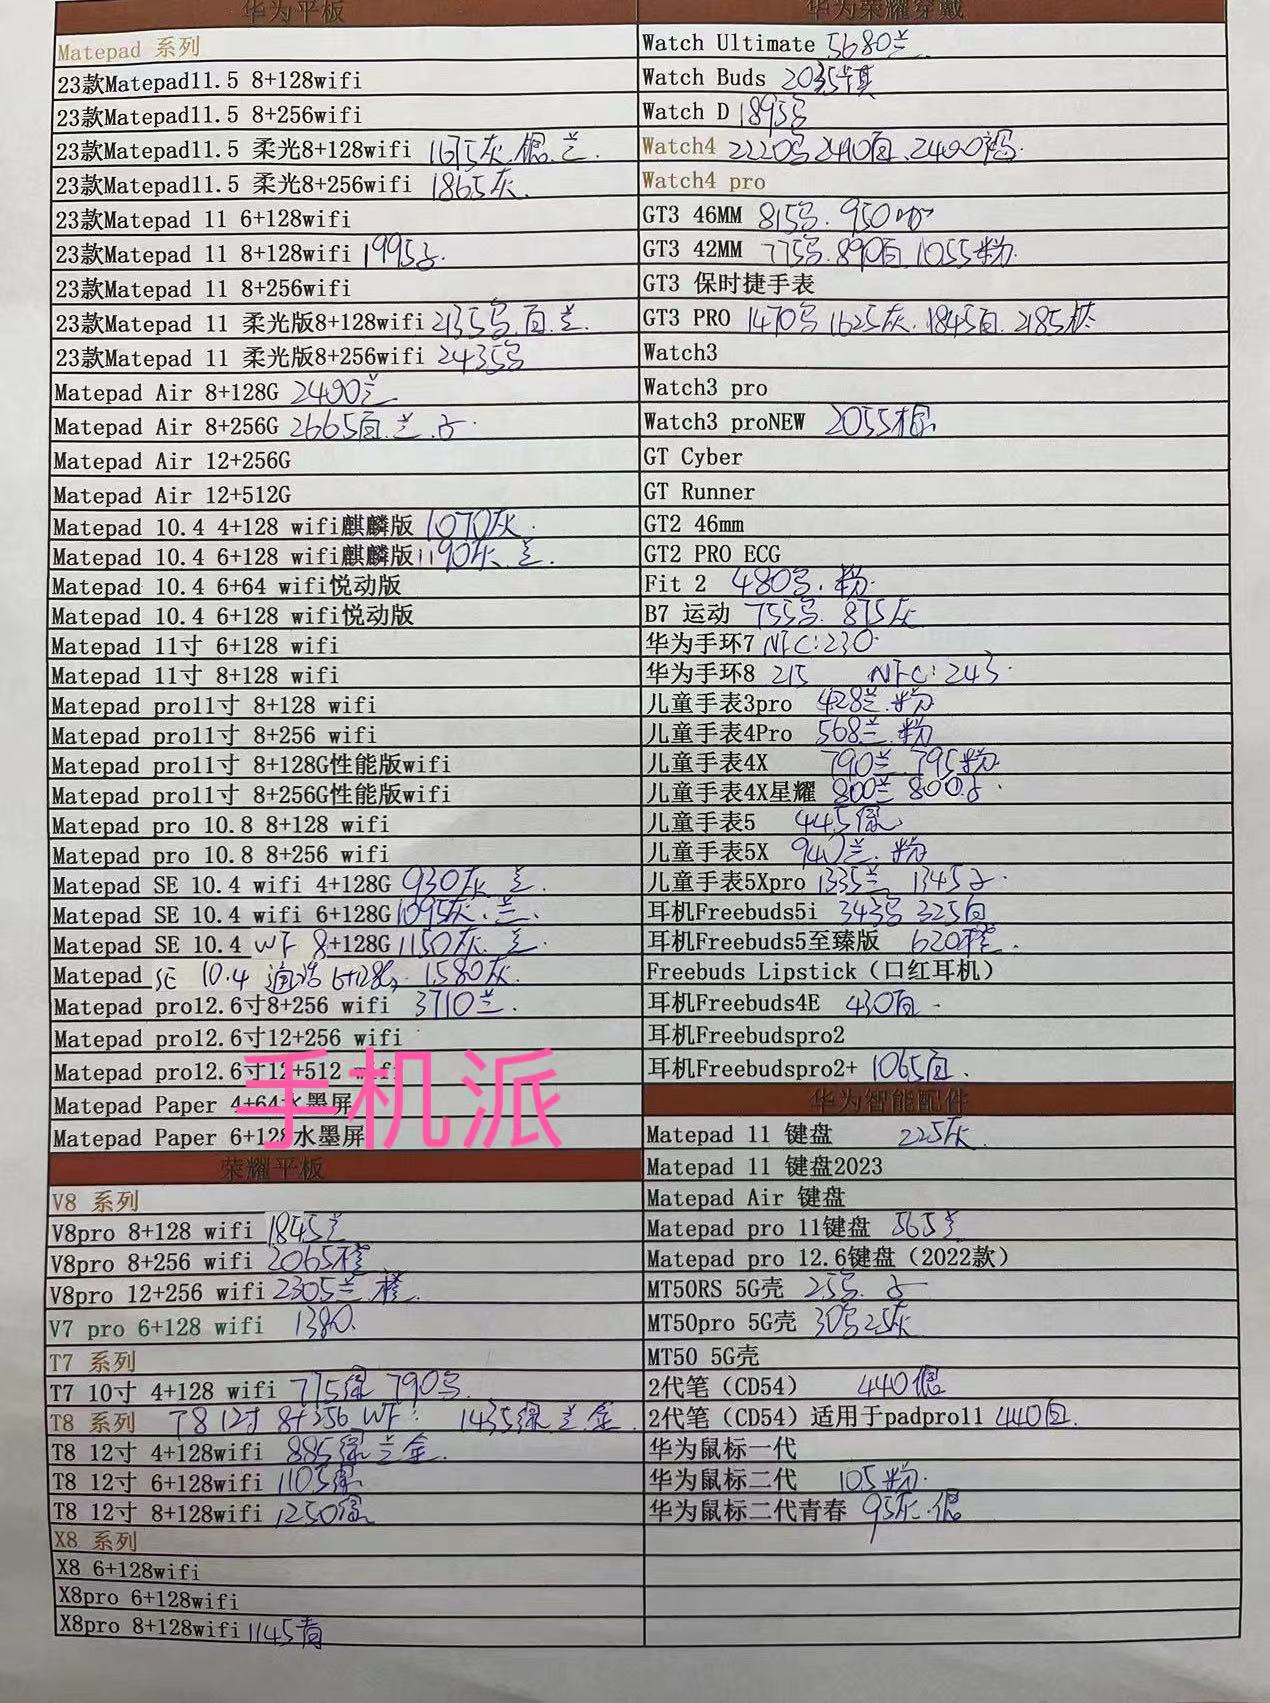 华为平板
Matepad 系列
23款Matepad11.5 8+128wifi
23款Matepad11.5 8+256wifi
23款Matepad11.5 柔光8+128wifi 1675灰.银.兰.
23款Matepad11.5 柔光8+256wifi 1865灰.
23款Matepad 11 6+128wifi
23款Matepad 11 8+128wifi 1995
23款Matepad 11 8+256wifi
23款Matepad 11 柔光版8+128wifi 2135 白.兰.
23款Matepad 11 柔光版8+256wifi 2435
Matepad Air 8+128G 2490兰
Matepad Air 8+256G 2665白.兰.
Matepad Air 12+256G
Matepad Air 12+512G
Matepad 10.4 4+128 wifi麒麟版 1070灰.
Matepad 10.4 6+128 wifi麒麟版 1190灰.兰.
Matepad 10.4 6+64 wifi悦动版
Matepad 10.4 6+128 wifi悦动版
Matepad 11寸 6+128 wifi
Matepad 11寸 8+128 wifi
Matepad pro11寸 8+128 wifi
Matepad pro11寸 8+256 wifi
Matepad pro11寸 8+128G性能版wifi
Matepad pro11寸 8+256G性能版wifi
Matepad pro 10.8 8+128 wifi
Matepad pro 10.8 8+256 wifi
Matepad SE 10.4 wifi 4+128G 930灰 兰.
Matepad SE 10.4 wifi 6+128G 1095灰.兰.
Matepad SE 10.4 WF 8+128G 1150灰.兰.
Matepad SE 10.4 通话 6+128G 1580灰.
Matepad pro12.6寸8+256 wifi 3710兰.
Matepad pro12.6寸12+256 wifi
Matepad pro12.6寸12+512 wifi
Matepad Paper 4+64水墨屏
Matepad Paper 6+128水墨屏
手机派
荣耀平板
V8 系列
V8pro 8+128 wifi 1845兰
V8pro 8+256 wifi 2065橙
V8pro 12+256 wifi 2305兰.橙.
V7 pro 6+128 wifi 1380.
T7 系列
T7 10寸 4+128 wifi 775绿 790
T8 系列 T8 12寸 8+256 WF: 1435绿.兰.金.
T8 12寸 4+128wifi 885绿兰金.
T8 12寸 6+128wifi 1105绿
T8 12寸 8+128wifi 1250绿
X8 系列
X8 6+128wifi
X8pro 6+128wifi
X8pro 8+128wifi 1145青
华为荣耀穿戴
Watch Ultimate 5680兰
Watch Buds 2035
Watch D 1895
Watch4 2220 2490白.2490褐.
Watch4 pro
GT3 46MM 815 950
GT3 42MM 775 890白 1055粉.
GT3 保时捷手表
GT3 PRO 1470 1625灰.1845白.2185
Watch3
Watch3 pro
Watch3 proNEW 2055棕.
GT Cyber
GT Runner
GT2 46mm
GT2 PRO ECG
Fit 2 480 粉.
B7 运动 755 875灰
华为手环7 NFC:230
华为手环8 215 NFC:243.
儿童手表3pro 428兰.粉
儿童手表4Pro 568兰.粉
儿童手表4X 790兰 795粉
儿童手表4X星耀 800兰 800
儿童手表5 445
儿童手表5X 940兰.粉
儿童手表5Xpro 1335兰 1345
耳机Freebuds5i 343 325白
耳机Freebuds5至臻版 620橙.
Freebuds Lipstick（口红耳机）
耳机Freebuds4E 430白.
耳机Freebudspro2
耳机Freebudspro2+ 1065白.
华为智能配件
Matepad 11 键盘 225灰.
Matepad 11 键盘2023
Matepad Air 键盘
Matepad pro 11键盘 565兰
Matepad pro 12.6键盘（2022款）
MT50RS 5G壳 25
MT50pro 5G壳 30 25灰
MT50 5G壳
2代笔（CD54） 440银
2代笔（CD54）适用于padpro11 440白.
华为鼠标一代
华为鼠标二代 105粉.
华为鼠标二代青春 95灰.银